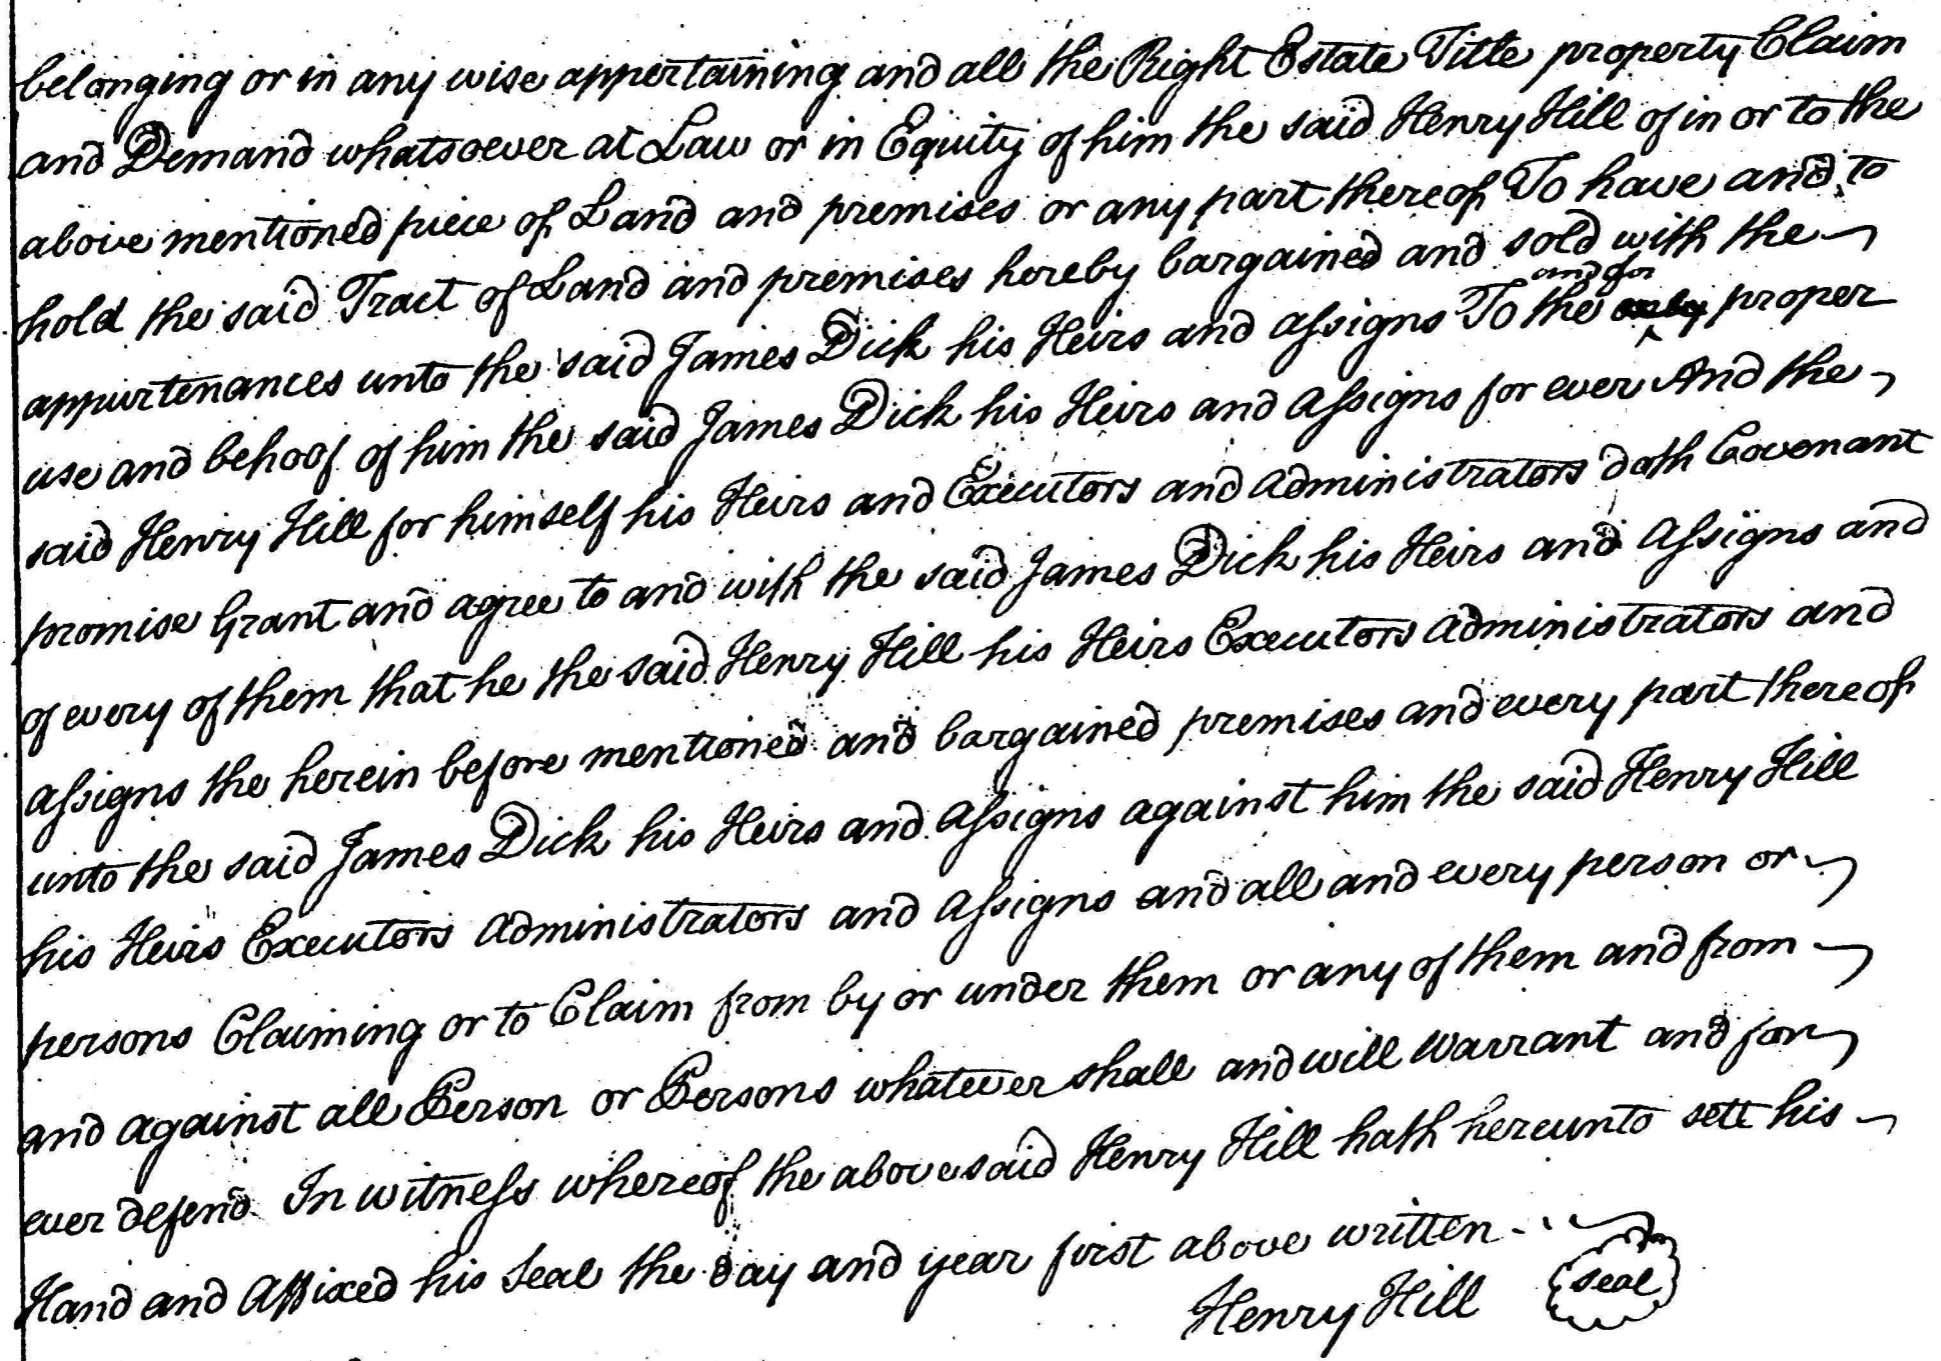 belonging or in any wise appertaining and all the Right Estate Title property Claim
and Demand whatsoever at Law or in Equity of him the said Henry Hill of in or to the
above mentioned piece of Land and premises or any part thereof To have and to
hold the said Tract of Land and premises hereby bargained and sold with the
and for
appurtenances unto the said James Dick his Heirs and assigns To the only proper
use and behoof of him the said James Dick his Heirs and Assigns for ever And the
said Henry Hill for himself his Heirs and Executors and Administrators doth Covenant
promise Grant and agree to and with the said James Dick his Heirs and Assigns and
of every of them that he the said Henry Hill his Heirs Executors Administrators and
Assigns the herein before mentioned and bargained premises and every part thereof
unto the said James Dick his Heirs and Assigns against him the said Henry Hill
his Heirs Executors Administrators and Assigns and all and every person or
persons Claiming or to Claim from by or under them or any of them and from
and against all Person or Persons whatever shall and will Warrant and for
ever defend In witness whereof the abovesaid Henry Hill hath hereunto sett his
Hand and Affixed his Seal the day and year first above written
Henry Hill Seal